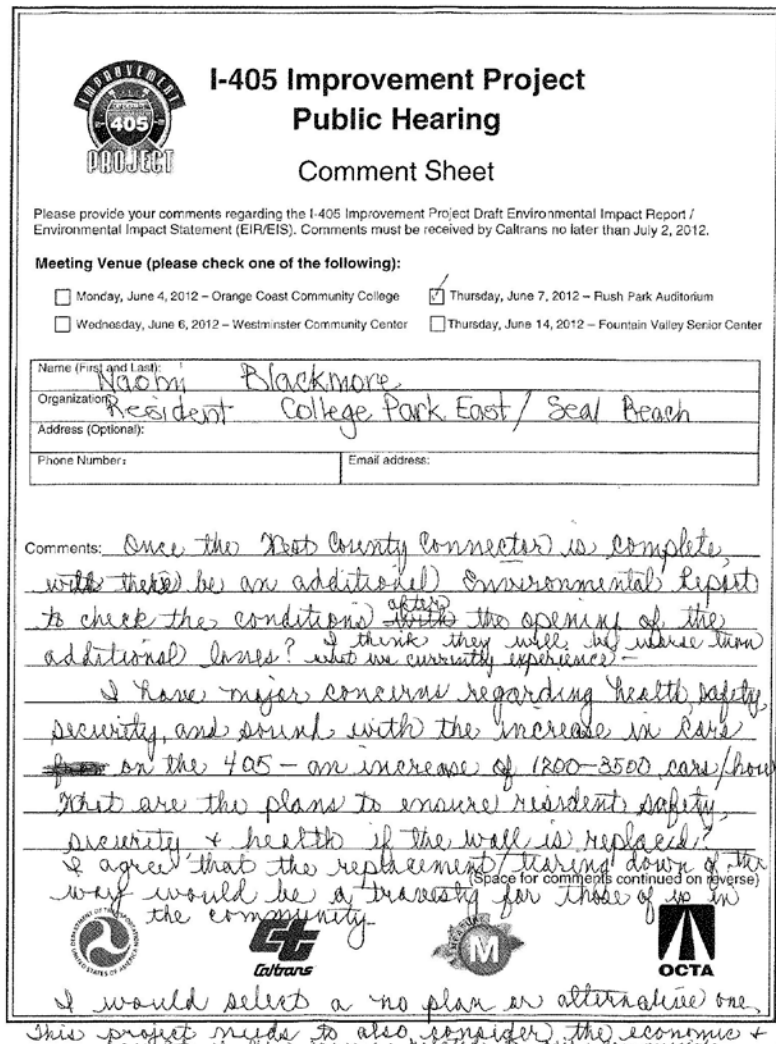 IMPROVEMENT
405
PROJECT
I-405 Improvement Project
Public Hearing
Comment Sheet
Please provide your comments regarding the I-405 Improvement Project Draft Environmental Impact Report /
Environmental Impact Statement (EIR/EIS). Comments must be received by Caltrans no later than July 2, 2012.
Meeting Venue (please check one of the following):
Monday, June 4, 2012 – Orange Coast Community College
Thursday, June 7, 2012 – Rush Park Auditorium
Wednesday, June 6, 2012 – Westminster Community Center
Thursday, June 14, 2012 – Fountain Valley Senior Center
Name (First and Last): Naomi Blackmore
Organization: Resident College Park East / Seal Beach
Address (Optional):
Phone Number:
Email address:
Comments: Once the West County Connector is complete,
will there be an additional Environmental Report
to check the conditions after the opening of the
additional lanes? I think they will be worse than
what we currently experience –
I have major concerns regarding health, safety,
security, and sound with the increase in cars
on the 405 – an increase of 1200-3500 cars/hour
What are the plans to ensure resident safety,
security + health if the wall is replaced?
I agree that the replacement/tearing down of the
(Space for comments continued on reverse)
way would be a travesty for those of us in
the community.
DEPARTMENT OF TRANSPORTATION
UNITED STATES OF AMERICA
Caltrans
M
OCTA
I would select a no plan or alternative one.
This project needs to also consider the economic +